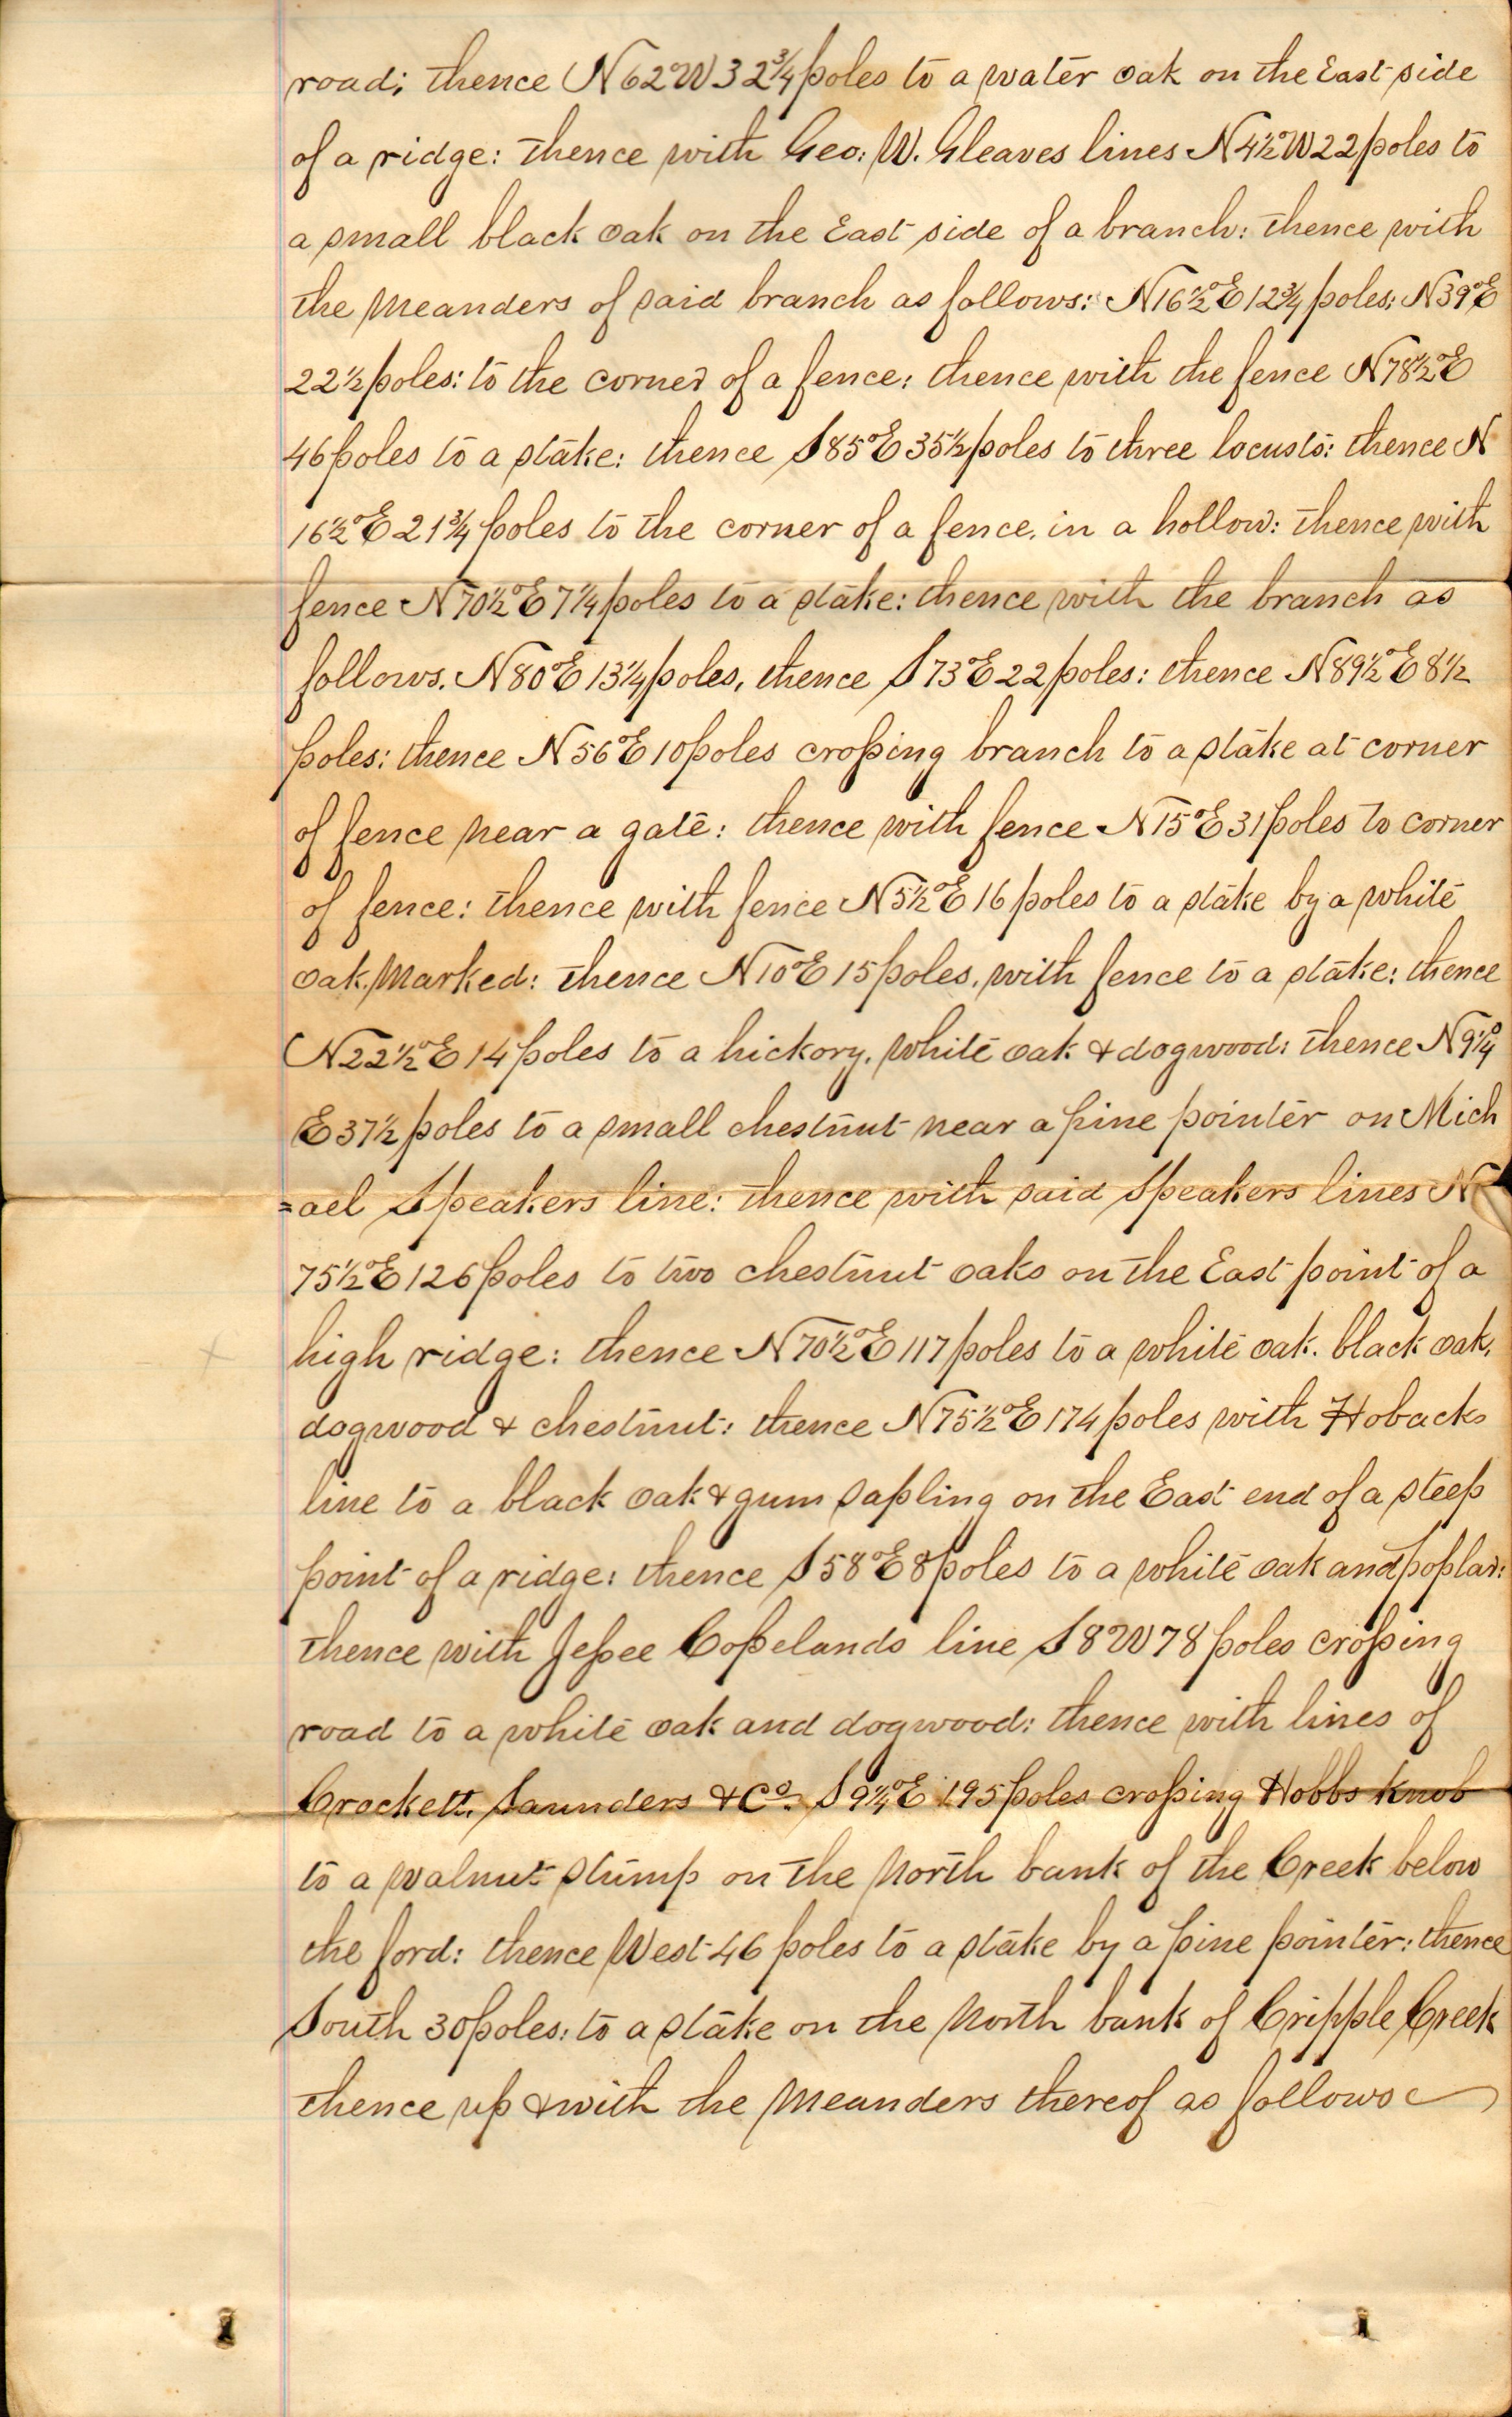 road; thence N62°W 32¾ poles to a water oak on the East side
of a ridge: thence with Geo: W. Gleaves lines N4½°W 22 poles to
a small black oak on the East side of a branch: thence with
the meanders of said branch as follows: N16½°E 12¾ poles; N39°E
22½ poles: to the corner of a fence; thence with the fence N78½°E
46 poles to a stake: thence S85°E 35½ poles to three locusts: thence N
16½°E 21¾ poles to the corner of a fence, in a hollow: thence with
fence N70½°E 7¼ poles to a stake: thence with the branch as
follows. N80°E 13¼ poles, thence S73°E 22 poles: thence N89½°E 8½
poles: thence N56°E 10 poles croſsing branch to a stake at corner
of fence near a gate: thence with fence N15°E 31 poles to corner
of fence: thence with fence N5½°E 16 poles to a stake by a white
oak marked: thence N10°E 15 poles, with fence to a stake: thence
N22½°E 14 poles to a hickory, white oak & dogwood: thence N9¼°
E 37½ poles to a small chestnut near a pine pointer on Mich
=ael Speakers line: thence with said Speakers lines N
75½°E 126 poles to two chestnut oaks on the East point of a
high ridge: thence N70½°E 117 poles to a white oak. black oak,
dogwood & chestnut: thence N75½°E 174 poles with Hobacks
line to a black oak & gum sapling on the East end of a steep
point of a ridge: thence S58°E 8 poles to a white oak and poplar:
thence with Jeſsee Copelands line S8°W 78 poles croſsing
road to a white oak and dogwood: thence with lines of
Crockett, Saunders & Co. S9¼°E 195 poles croſsing Hobbs Knob
to a walnut stump on the North bank of the Creek below
the ford: thence West 46 poles to a stake by a pine pointer: thence
South 30 poles: to a stake on the North bank of Cripple Creek
thence up & with the meanders thereof as follows